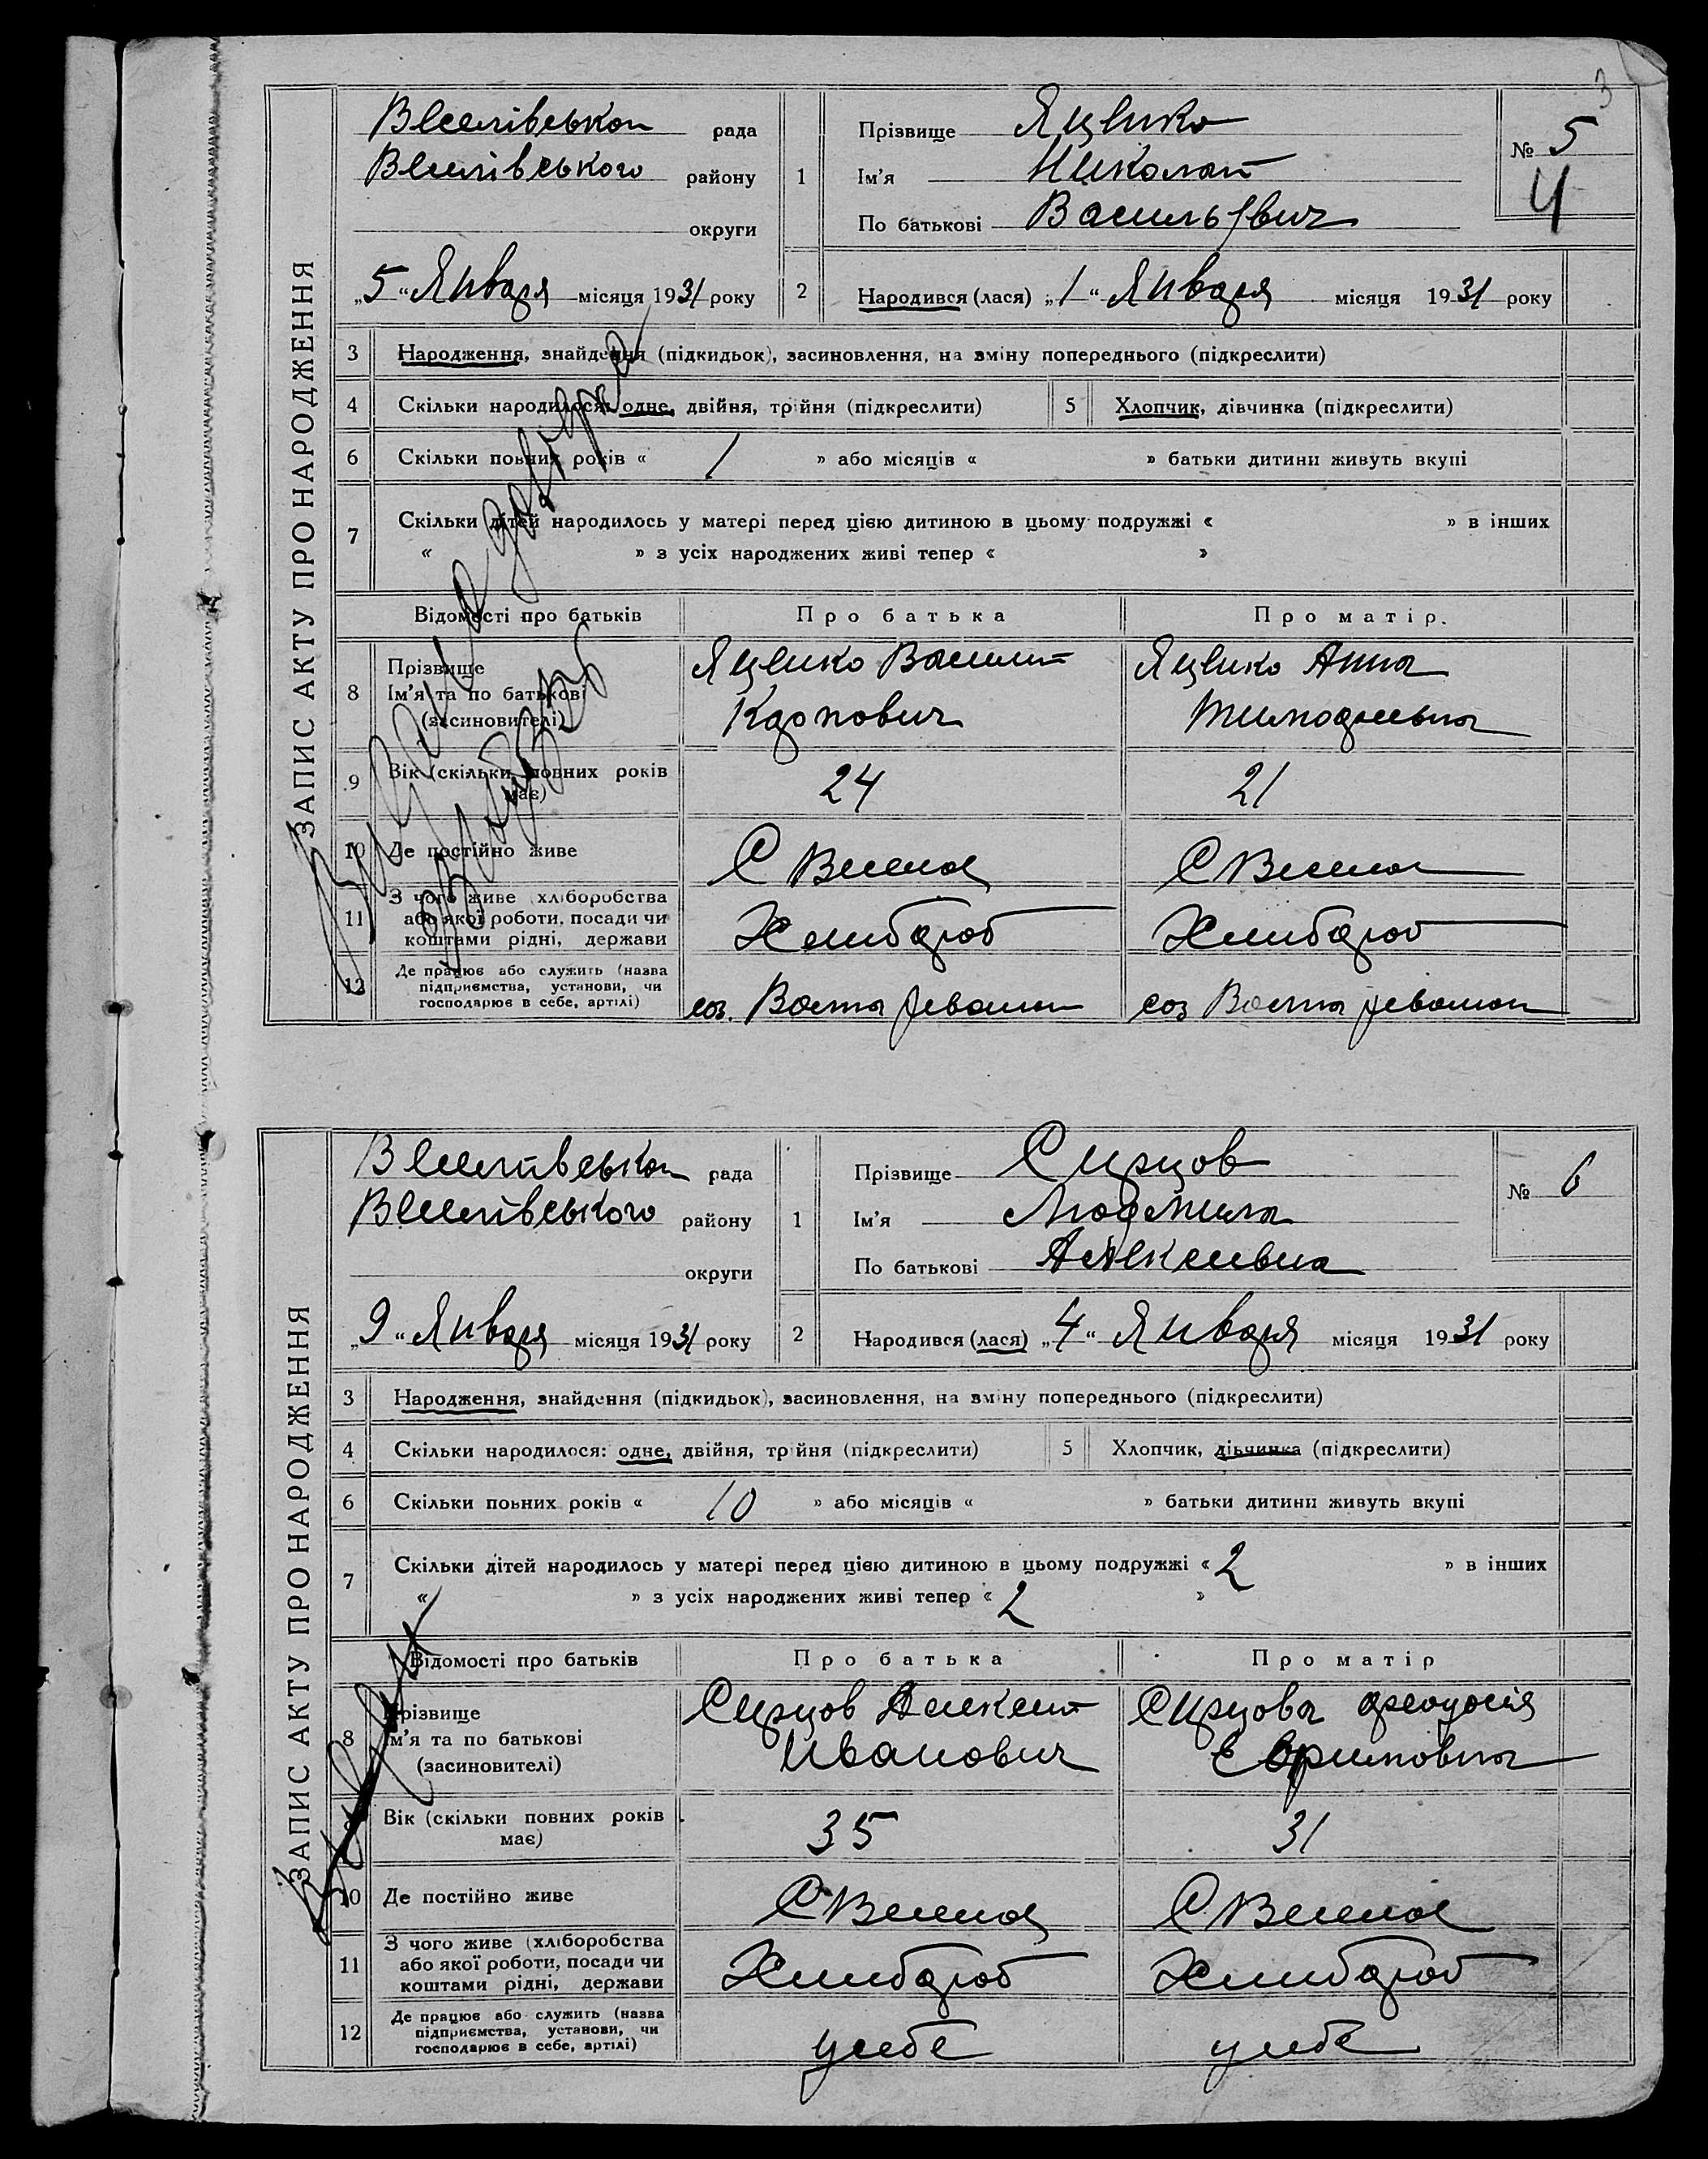 3
ЗАПИС АКТУ ПРО НАРОДЖЕННЯ
Веселівськоі рада
Веселівського району
округи
„5“ Января місяця 1931 року
1 Прізвище Яценко
Ім'я Николай
По батькові Васильевич
№ 5
4
2 Народився (лася) „1“ Января місяця 1931 року
3 Народження, знайдення (підкидьок), засиновлення, на зміну попереднього (підкреслити)
4 Скільки народилося: одне, двійня, трійня (підкреслити) 5 Хлопчик, дівчинка (підкреслити)
6 Скільки повних років « 1 » або місяців « » батьки дитини живуть вкупі
7 Скільки дітей народилось у матері перед цією дитиною в цьому подружжі « » в інших
« » з усіх народжених живі тепер « »
Відомості про батьків Про батька Про матір.
8 Прізвище Ім'я та по батькові (засновителі) Яценко Василий Карпович Яценко Анна Тимофеевна
9 Вік (скільки повних років має) 24 21
10 Де постійно живе С Веселое С Веселое
11 З чого живе (хліборобства або якої роботи, посади чи коштами рідні, держави Хлибороб Хлибороб
12 Де працює або служить (назва підприємства, установи, чи господарює в себе, артілі) соз. соз
ЗАПИС АКТУ ПРО НАРОДЖЕННЯ
Веселівськоі рада
Веселівського району
округи
„9“ Января місяця 1931 року
1 Прізвище Сирцов
Ім'я Людмила
По батькові Алексеевна
№ 6
2 Народився (лася) „4“ Января місяця 1931 року
3 Народження, знайдення (підкидьок), засиновлення, на зміну попереднього (підкреслити)
4 Скільки народилося: одне, двійня, трійня (підкреслити) 5 Хлопчик, дівчинка (підкреслити)
6 Скільки повних років « 10 » або місяців « » батьки дитини живуть вкупі
7 Скільки дітей народилось у матері перед цією дитиною в цьому подружжі « 2 » в інших
« » з усіх народжених живі тепер « 2 »
Відомості про батьків Про батька Про матір
8 Прізвище Ім'я та по батькові (засиновителі) Сирцов Алексей Иванович Сирцова Феодосія Ефримовна
9 Вік (скільки повних років має) 35 31
10 Де постійно живе С Веселое С Веселое
11 З чого живе (хліборобства або якої роботи, посади чи коштами рідні, держави Хлибороб Хлибороб
12 Де працює або служить (назва підприємства, установи, чи господарює в себе, артілі) усебе усебе